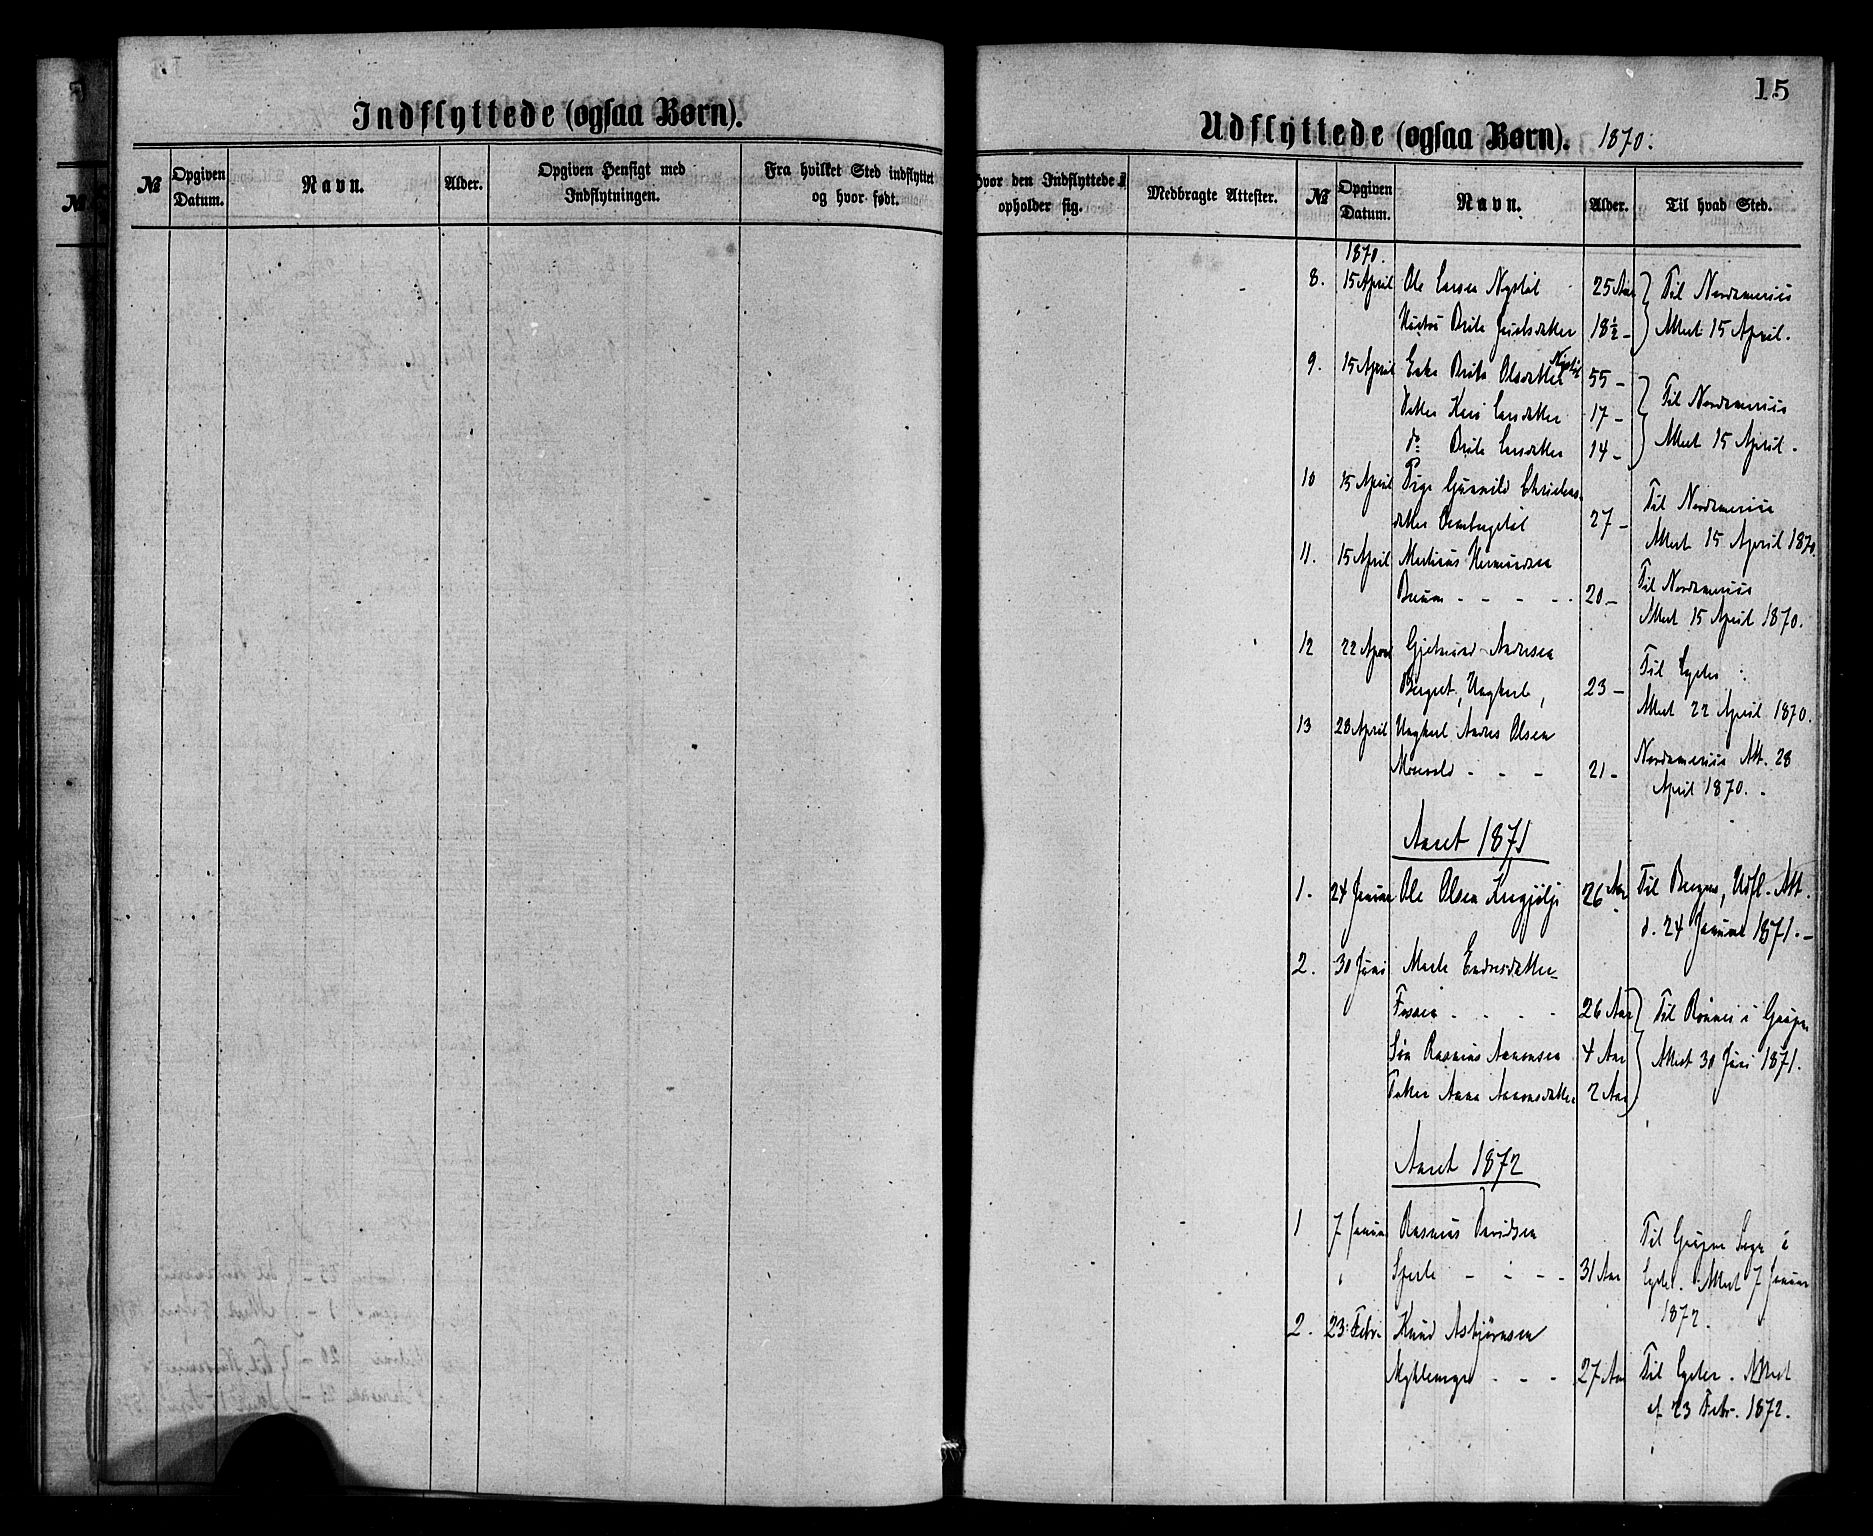 15
Indflyttede (ogsaa Børn).
Udflyttede (ogsaa Børn). 1870.
№
№ Opgiven Datum. Navn. Alder. Opgiven Hensigt med Indflytningen. Fra hvilket Sted indflyttet og hvor født.
Hvor den Indflyttede opholder sig. Medbragte Attester. № Opgiven Datum. Navn. Alder. Til hvad Sted.
1870.
8. 15 April Ole Larsen 25 Aar Til Nordamerica
Hustru Brite 18½ - Attest 15 April.
9. 15 April Enke Brite Olsdatter 55 -
Datter Kari Larsdatter 17 - Til Nordamerica
do Brite Larsdatter 14 - Attest 15 April.
10 15 April Pige Gunnild
datter 27 - Til Nordamerica
Attest 15 April 1870.
11. 15 April
Breum - - - - 20 - Til Nordamerica
Attest 15 April 1870.
12 22 April Gjetmund Andersen
Berget, Ungkarl, 23 - Til
Attest 22 April 1870.
13 28 April Ungkarl Anders Olsen
- - - 21 - Nordamerica Att. 28
April 1870.
Aaret 1871
1. 24 Januar Ole Olsen 26 Aar Til Bergen, Udfl. Att.
d. 24 Januar 1871.
2. 30 Juni Marte Endresdatter
26 Aar Til i Gaupne
Søn Rasmus Aamonsen 4 Aar Attest 30 Juni 1871.
Datter Anna Aamonsdatter 2 Aar
Aaret 1872
1 7 Januar Rasmus Davidsen
Sperle - - - 31 Aar Til Gaupne Sogn i
Attest 7 Januar
1872.
2. 23 Febr. Knud Asbjørnsen
- - - 27 Aar Til Attest
af 23 Febr. 1872.